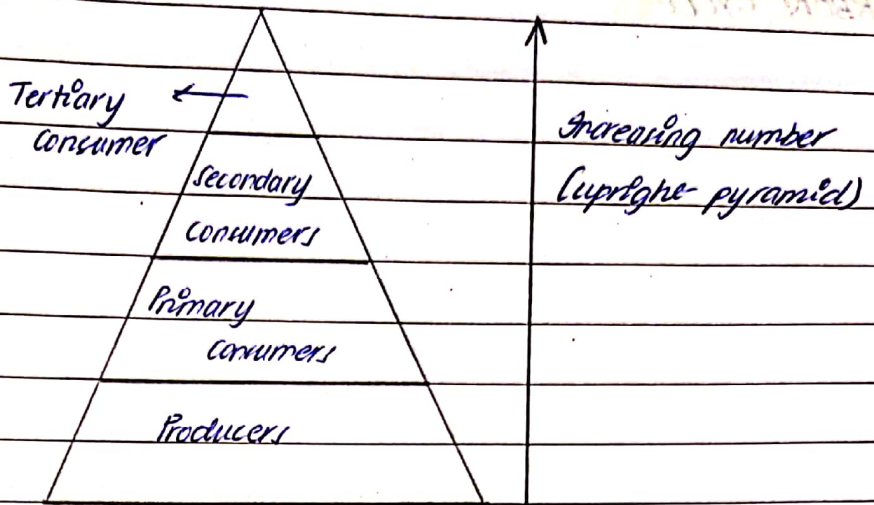 Tertiary
Consumer
Secondary
Consumers
Primary
Consumers
Producers
Increasing number
(upright pyramid)